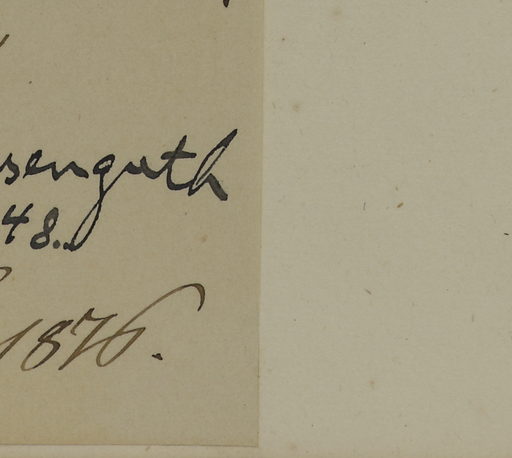 senguth
48.
1876.